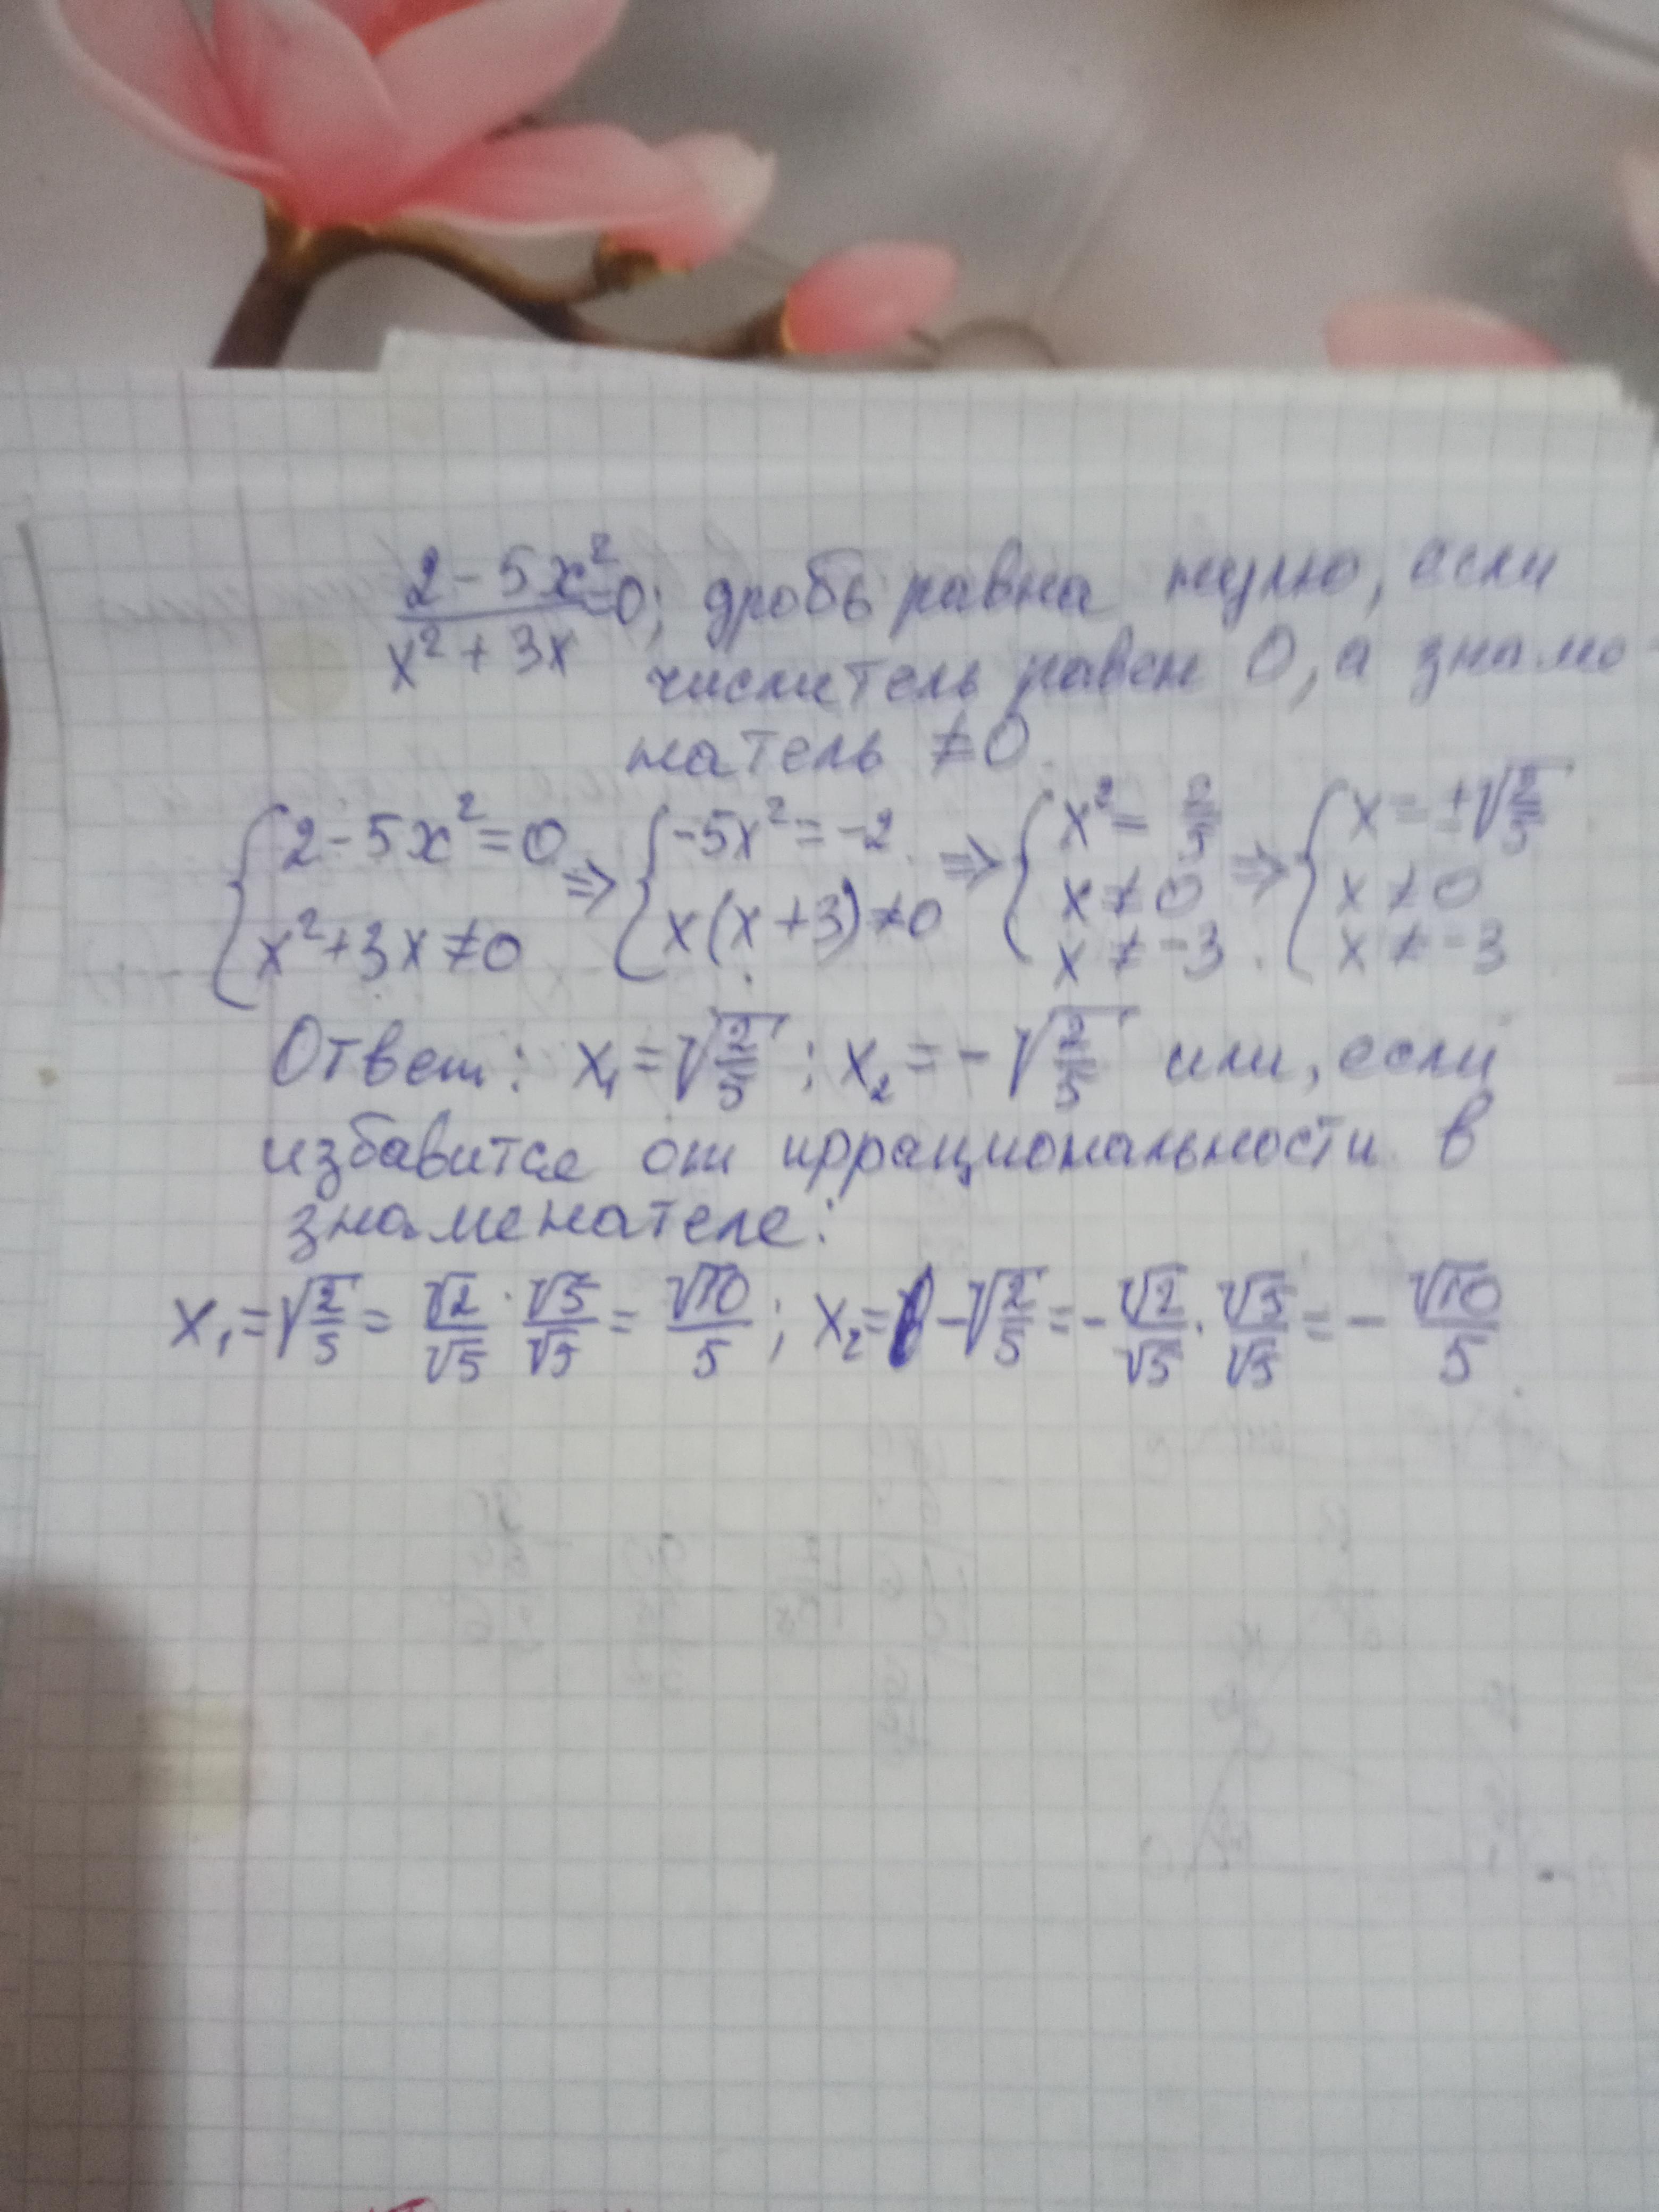 (2-5x²)/(x²+3x)=0; дробь равна нулю, если
числитель равен 0, а знаме-
натель ≠0.
{2-5x²=0; x²+3x≠0 ⇒ {-5x²=-2; x(x+3)≠0 ⇒ {x²=2/5; x≠0; x≠-3. ⇒ {x=±√(2/5); x≠0; x≠-3
Ответ: x₁=√(2/5); x₂=-√(2/5) или, если
избавится от иррациональности в
знаменателе:
x₁=√(2/5)=√2/√5·√5/√5=√10/5; x₂=-√(2/5)=-√2/√5·√5/√5=-√10/5.